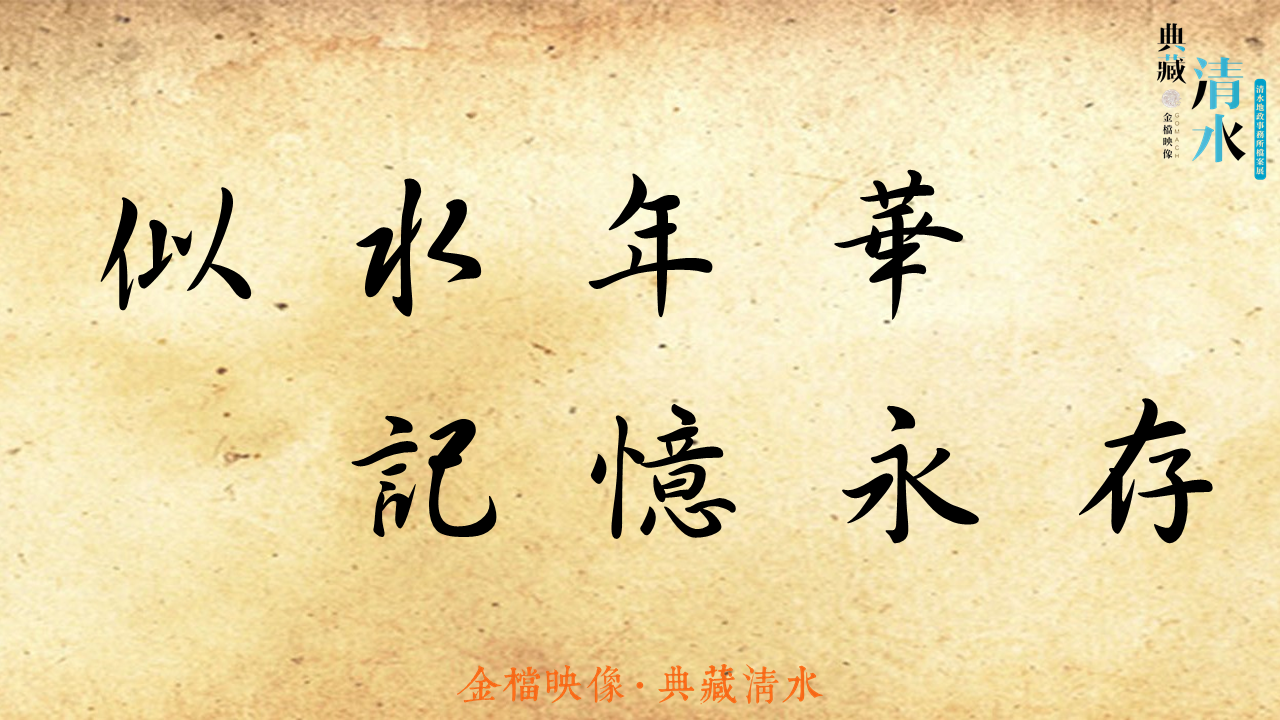 似水年華
記憶永存
典藏
清水
金檔映像
GOMACH
清水地政事務所檔案展
金檔映像·典藏清水